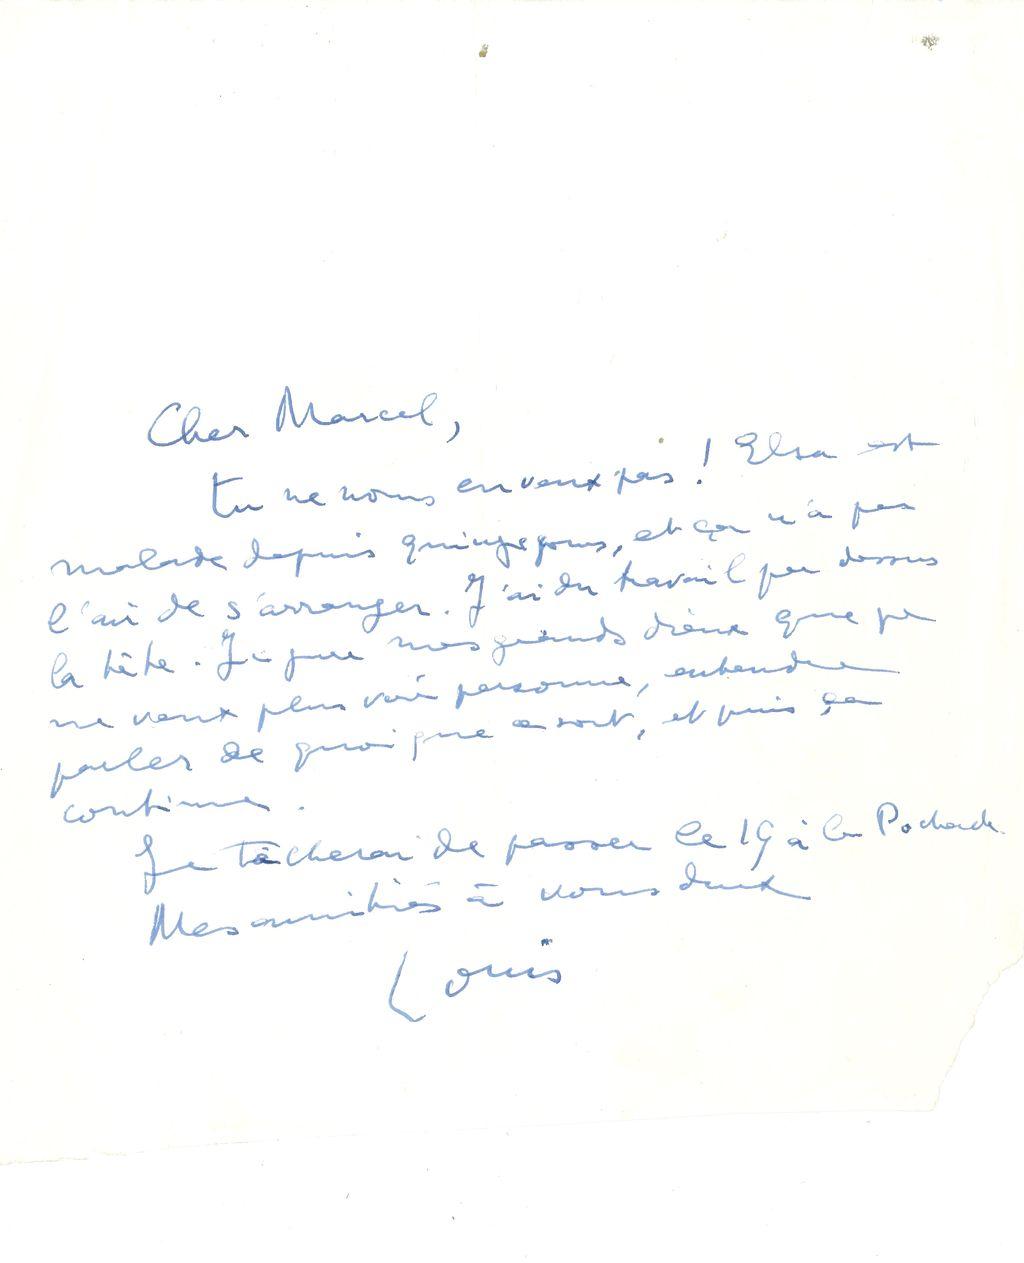 Cher Marcel,
tu ne nous en veux pas ! Elsa est
malade depuis quinze jours, et ça n'a pas
l'air de s'arranger. J'ai du travail par dessus
la tête. Je jure mes grands dieux que je
ne veux plus voir personne, entendre
parler de quoi que ce soit, et puis ça
continue.
Je tâcherai de passer le 19 à la Pochade.
Mes amitiés à vous deux
Louis